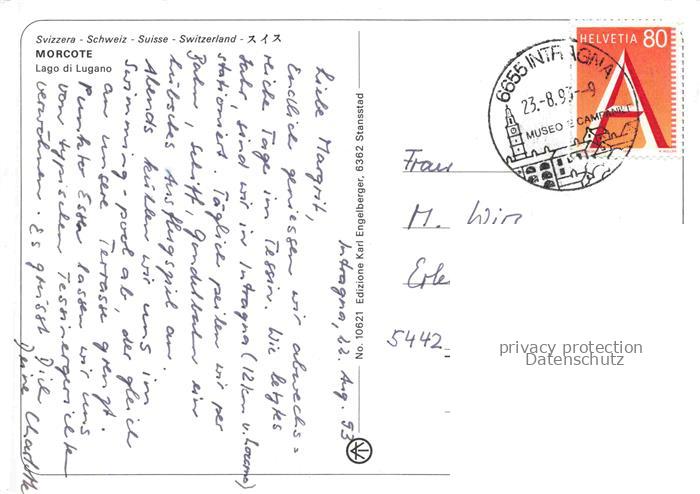 Svizzera - Schweiz - Suisse - Switzerland - スイス
MORCOTE
Lago di Lugano
Intragna, 22. Aug. 93
Liebe Margrit,
Endlich geniessen wir abwechs=
reiche Tage im Tessin. Wie letztes
Jahr, sind wir in Intragna (12 km v. Locarno)
stationiert. Täglich peilen wir per
Bahn, Schiff, Gondelbahn ein
hübsches Ausflugsziel an.
Abends kühlen wir uns im
Swimming-pool ab, der gleich
an unsere Terrasse grenzt.
Punkto Essen lassen wir uns
von typischen Tessinergerichten
verwöhnen. Es grüsst Dich
Deine Charlotte
No. 10621 Edizione Karl Engelberger, 6362 Stansstad
6655 INTRAGNA
23.-8.93-9
MUSEO E CAMPANILE
HELVETIA 80
A
Frau
M. Wir
Erle
5442
privacy protection
Datenschutz